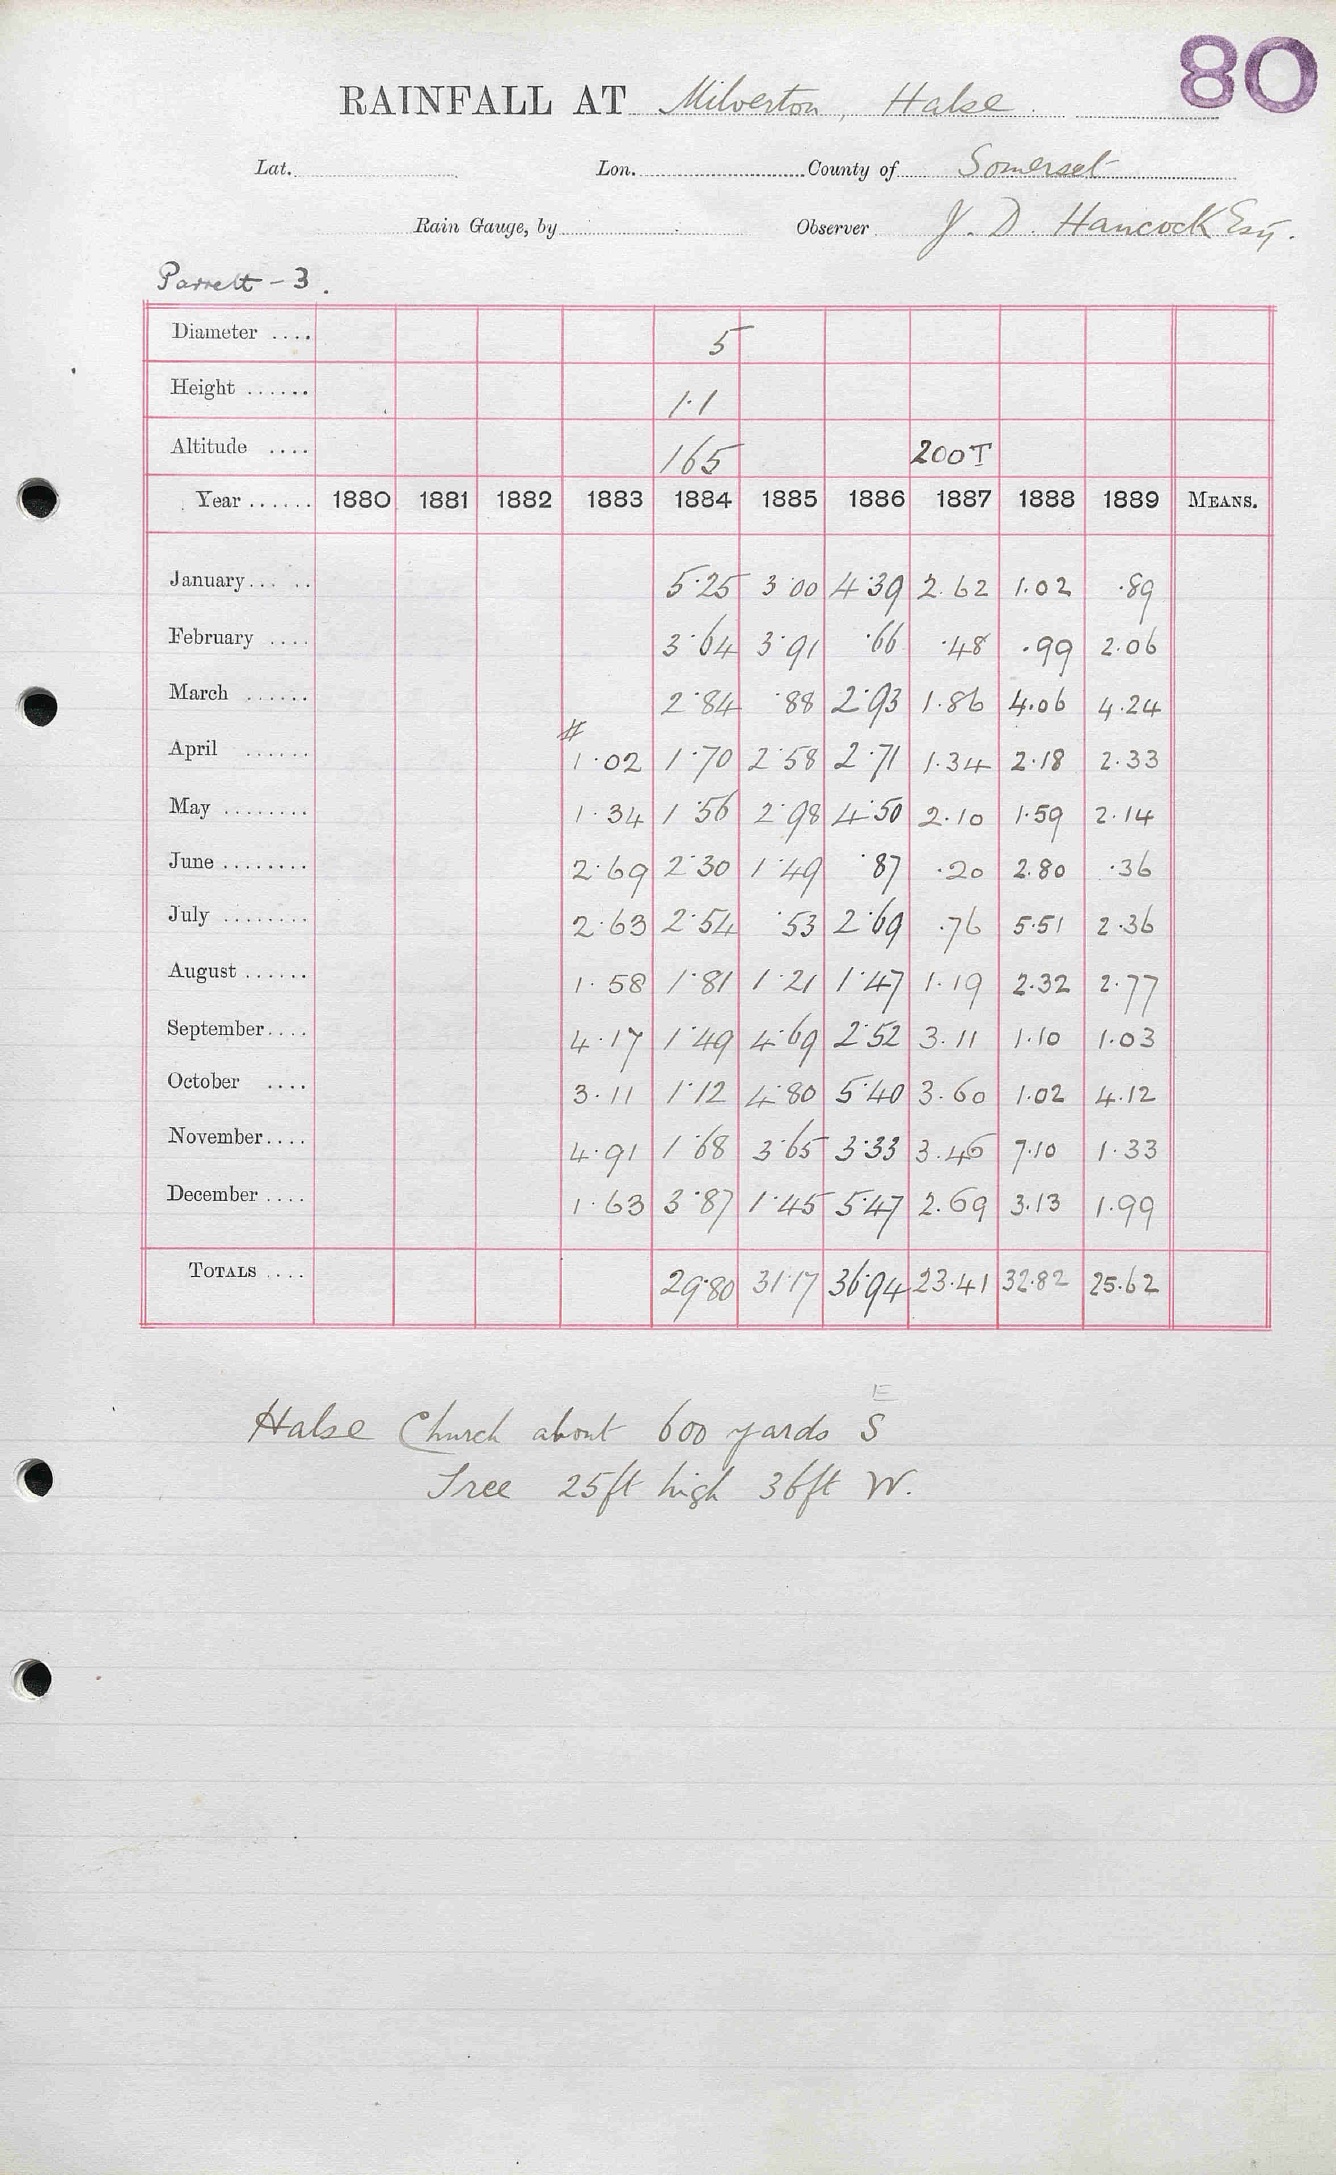 80
RAINFALL AT Milverton, Halse.
Lat. Lon. County of Somerset
Rain Gauge, by Observer J. D. Hancock Esq.
Parrett - 3.
Diameter .... 5
Height ...... 1.1
Altitude .... 165 200T
Year ...... 1880 1881 1882 1883 1884 1885 1886 1887 1888 1889 MEANS.
January... .. 5.25 3.00 4.39 2.62 1.02 .89
February .... 3.64 3.91 .66 .48 .99 2.06
March ...... 2.84 .88 2.93 1.86 4.06 4.24
#
April ...... 1.02 1.70 2.58 2.71 1.34 2.18 2.33
May ........ 1.34 1.56 2.98 4.50 2.10 1.59 2.14
June ........ 2.69 2.30 1.49 .87 .20 2.80 .36
July ........ 2.63 2.54 .53 2.69 .76 5.51 2.36
August ...... 1.58 1.81 1.21 1.47 1.19 2.32 2.77
September.... 4.17 1.49 4.69 2.52 3.11 1.10 1.03
October .... 3.11 1.12 4.80 5.40 3.60 1.02 4.12
November.... 4.91 1.68 3.65 3.33 3.46 7.10 1.33
December .... 1.63 3.87 1.45 5.47 2.69 3.13 1.99
TOTALS .... 29.80 31.17 36.94 23.41 32.82 25.62
E
Halse Church about 600 yards S
Tree 25ft high 36ft W.